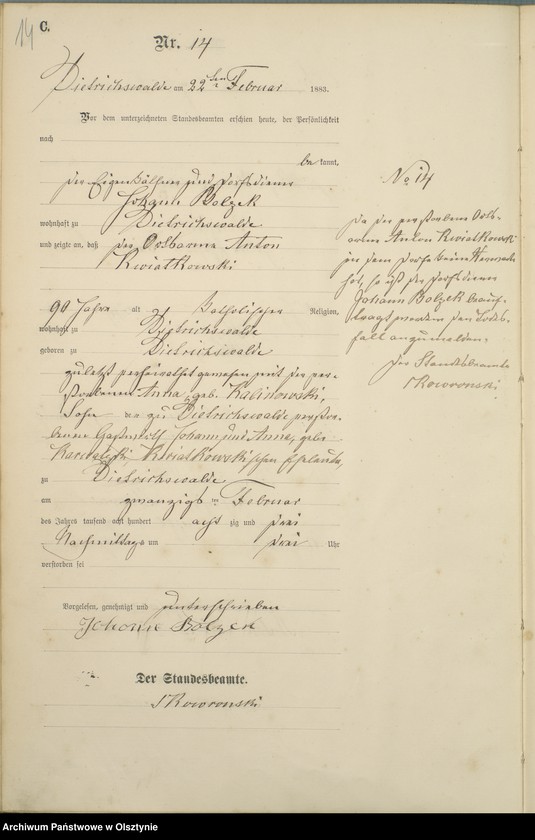 14
C.
Nr. 14
Dietrichswalde am 22ten Februar 1883.
Vor dem unterzeichneten Standesbeamten erschien heute, der Persönlichkeit
nach
be kannt,
der Eigenkäthner und Dorfsdiener
Johann Bolzek
wohnhaft zu Dietrichswalde
und zeigte an, daß der Ortsarme Anton
Kwiatkowski
90 Jahre alt Katholischer Religion,
wohnhaft zu Dietrichswalde
geboren zu Dietrichswalde
zuletzt verheirathet gewesen mit der ver-
storbenen Anna, geb. Kalinowski,
Sohn der zu Dietrichswalde verstor-
benen Johann und Anna, geb.
Kwiatkowskischen Eheleute,
zu Dietrichswalde
am zwanzigsten Februar
des Jahres tausend acht hundert acht zig und drei
Nachmittags um drei Uhr
verstorben sei
Vorgelesen, genehmigt und unterschrieben
Johann Bolzek
Der Standesbeamte.
Skowronski
No 14
Da der verstorbene Orts-
arme Anton Kwiatkowski
in dem Dorfe keine Verwandte
hat, so ist der Dorfsdiener
Johann Bolzek beauf-
tragt worden den Todes-
fall anzumelden.
Der Standesbeamte
Skowronski
Archiwum Państwowe w Olsztynie